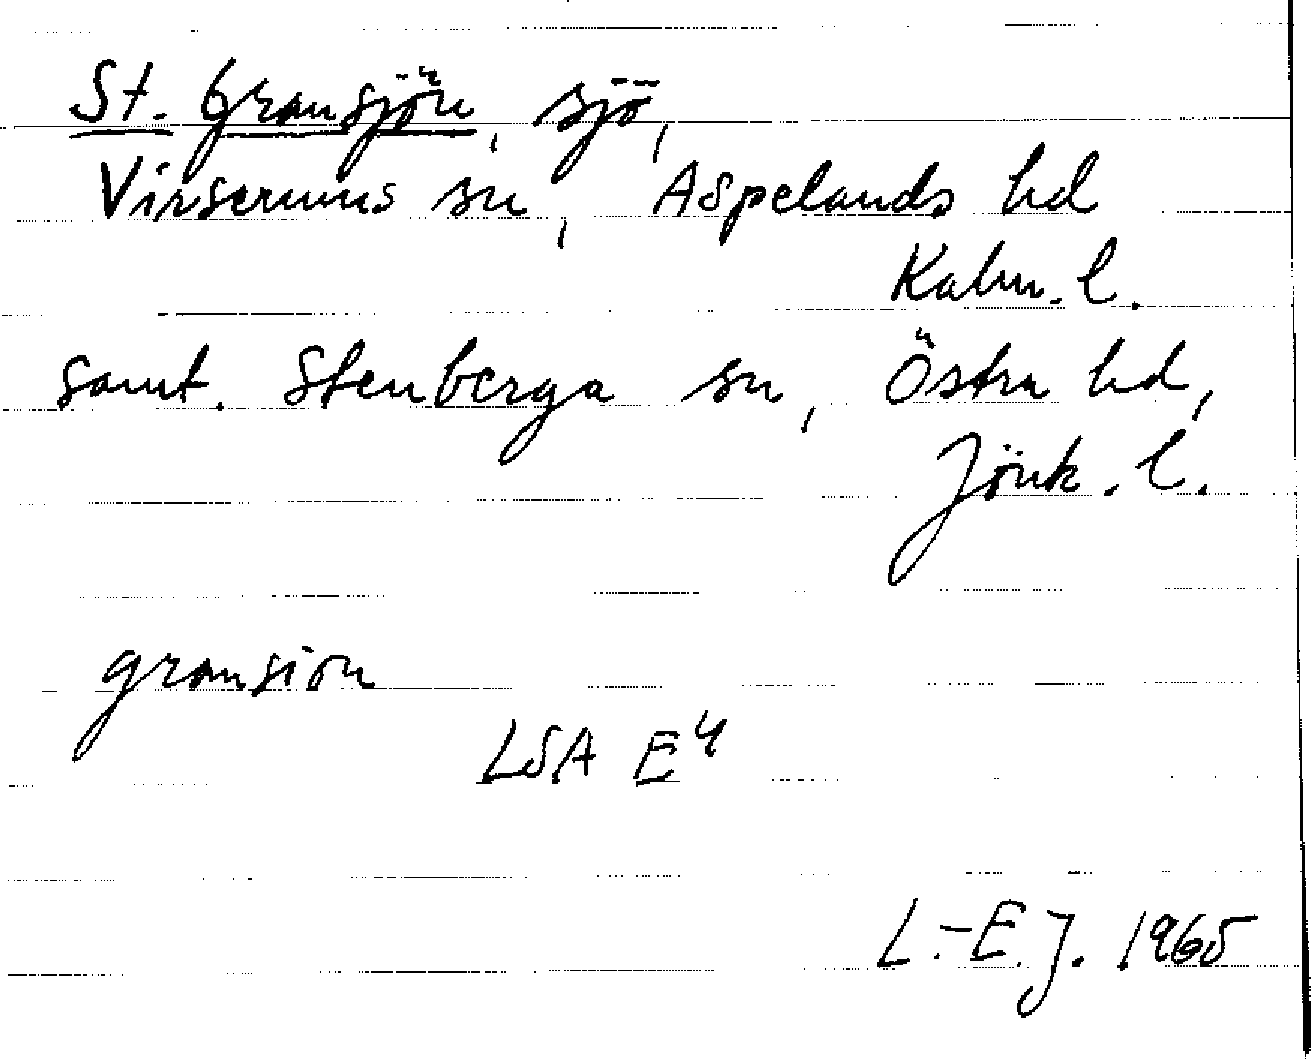 St. Gransjön, sjö,
Virserums sn, Aspelands hd
Kalm. l.
samt. Stenberga sn, Östra hd,
Jönk. l.
gransion
LSA E4
L.-E.J. 1965